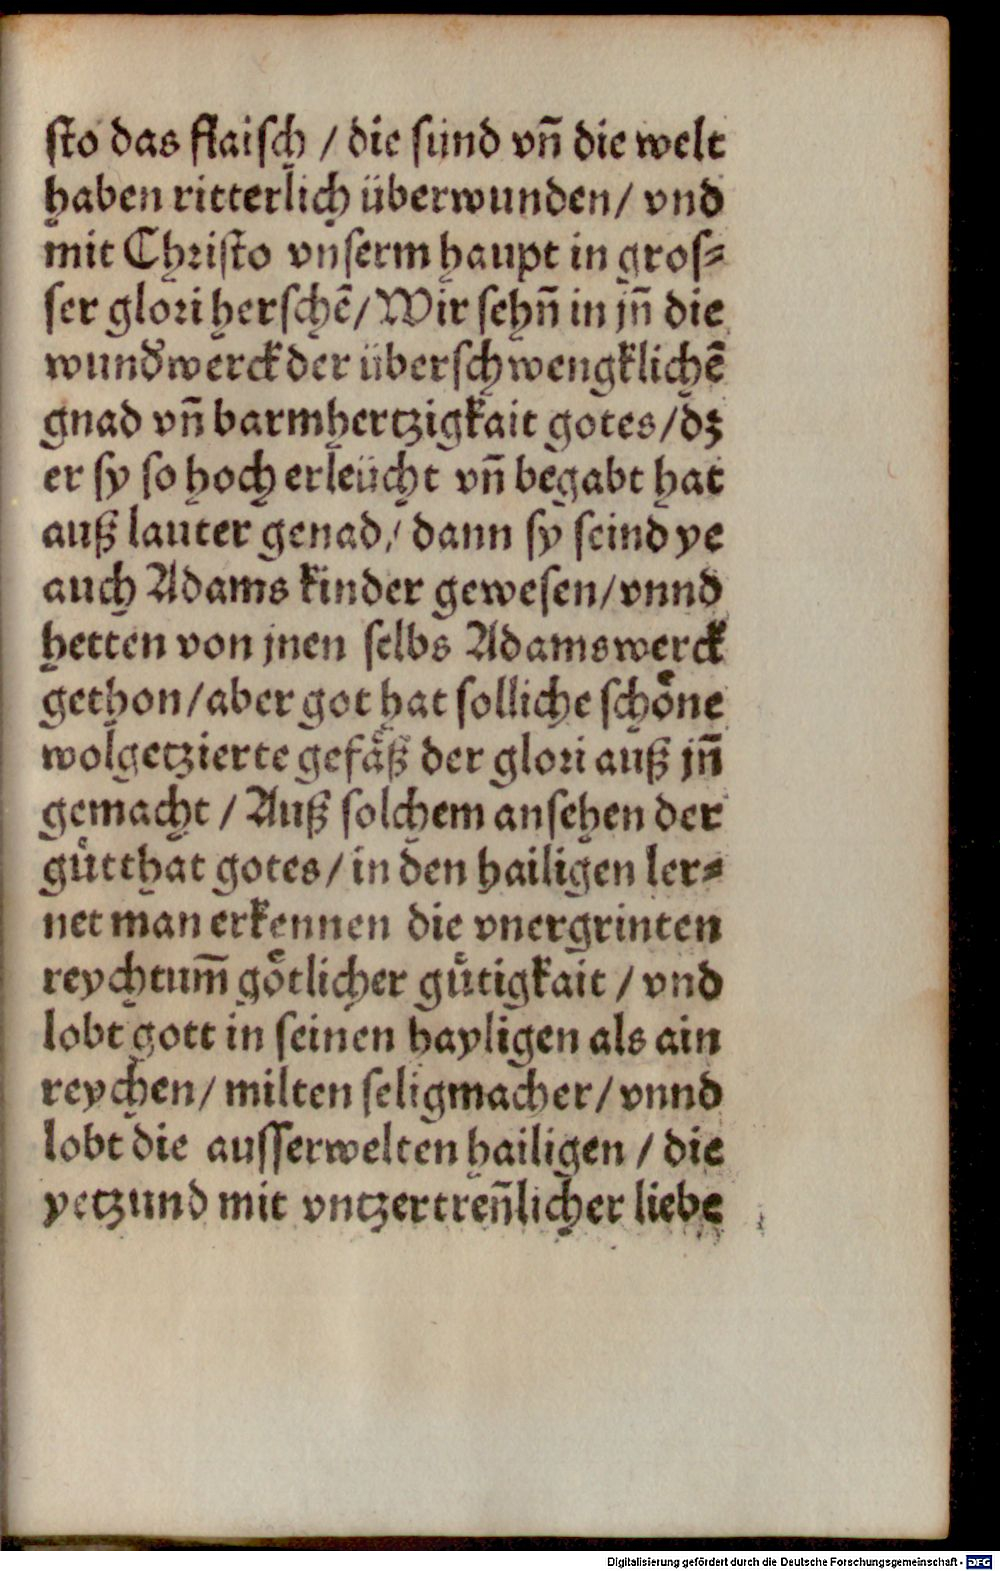 sto das flaisch / die sünd vñ die welt
haben ritterlich überwunden / vnd
mit Christo vnserm haupt in gros⸗
ser glori herschē / Wir sehñ in jñ die
wundˀwerck der überschwengklichē
gnad vñ barmhertzigkait gotes / dz
er sy so hoch erleücht vñ begabt hat
auß lauter genad / dann sy seind ye
auch Adams kinder gewesen / vnnd
hetten von jnen selbs Adams werck
gethon / aber got hat solliche schoͤne
wolgetzierte gefaͤß der glori auß jñ
gemacht / Auß solchem ansehen der
guͤtthat gotes / in den hailigen ler⸗
net man erkennen die vnergrinten
reychtum̄ goͤtlicher guͤtigkait / vnd
lobt gott in seinen hayligen als ain
reychen / milten seligmacher / vnnd
lobt die ausserwelten hailigen / die
yetzund mit vntzertreñlicher liebe
Digitalisierung gefördert durch die Deutsche Forschungsgemeinschaft - DFG